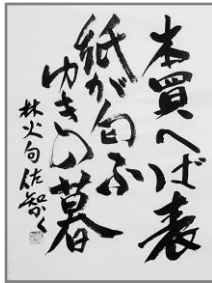 本買へば表
紙が匂ふ
ゆきの暮
林火句 佐智く